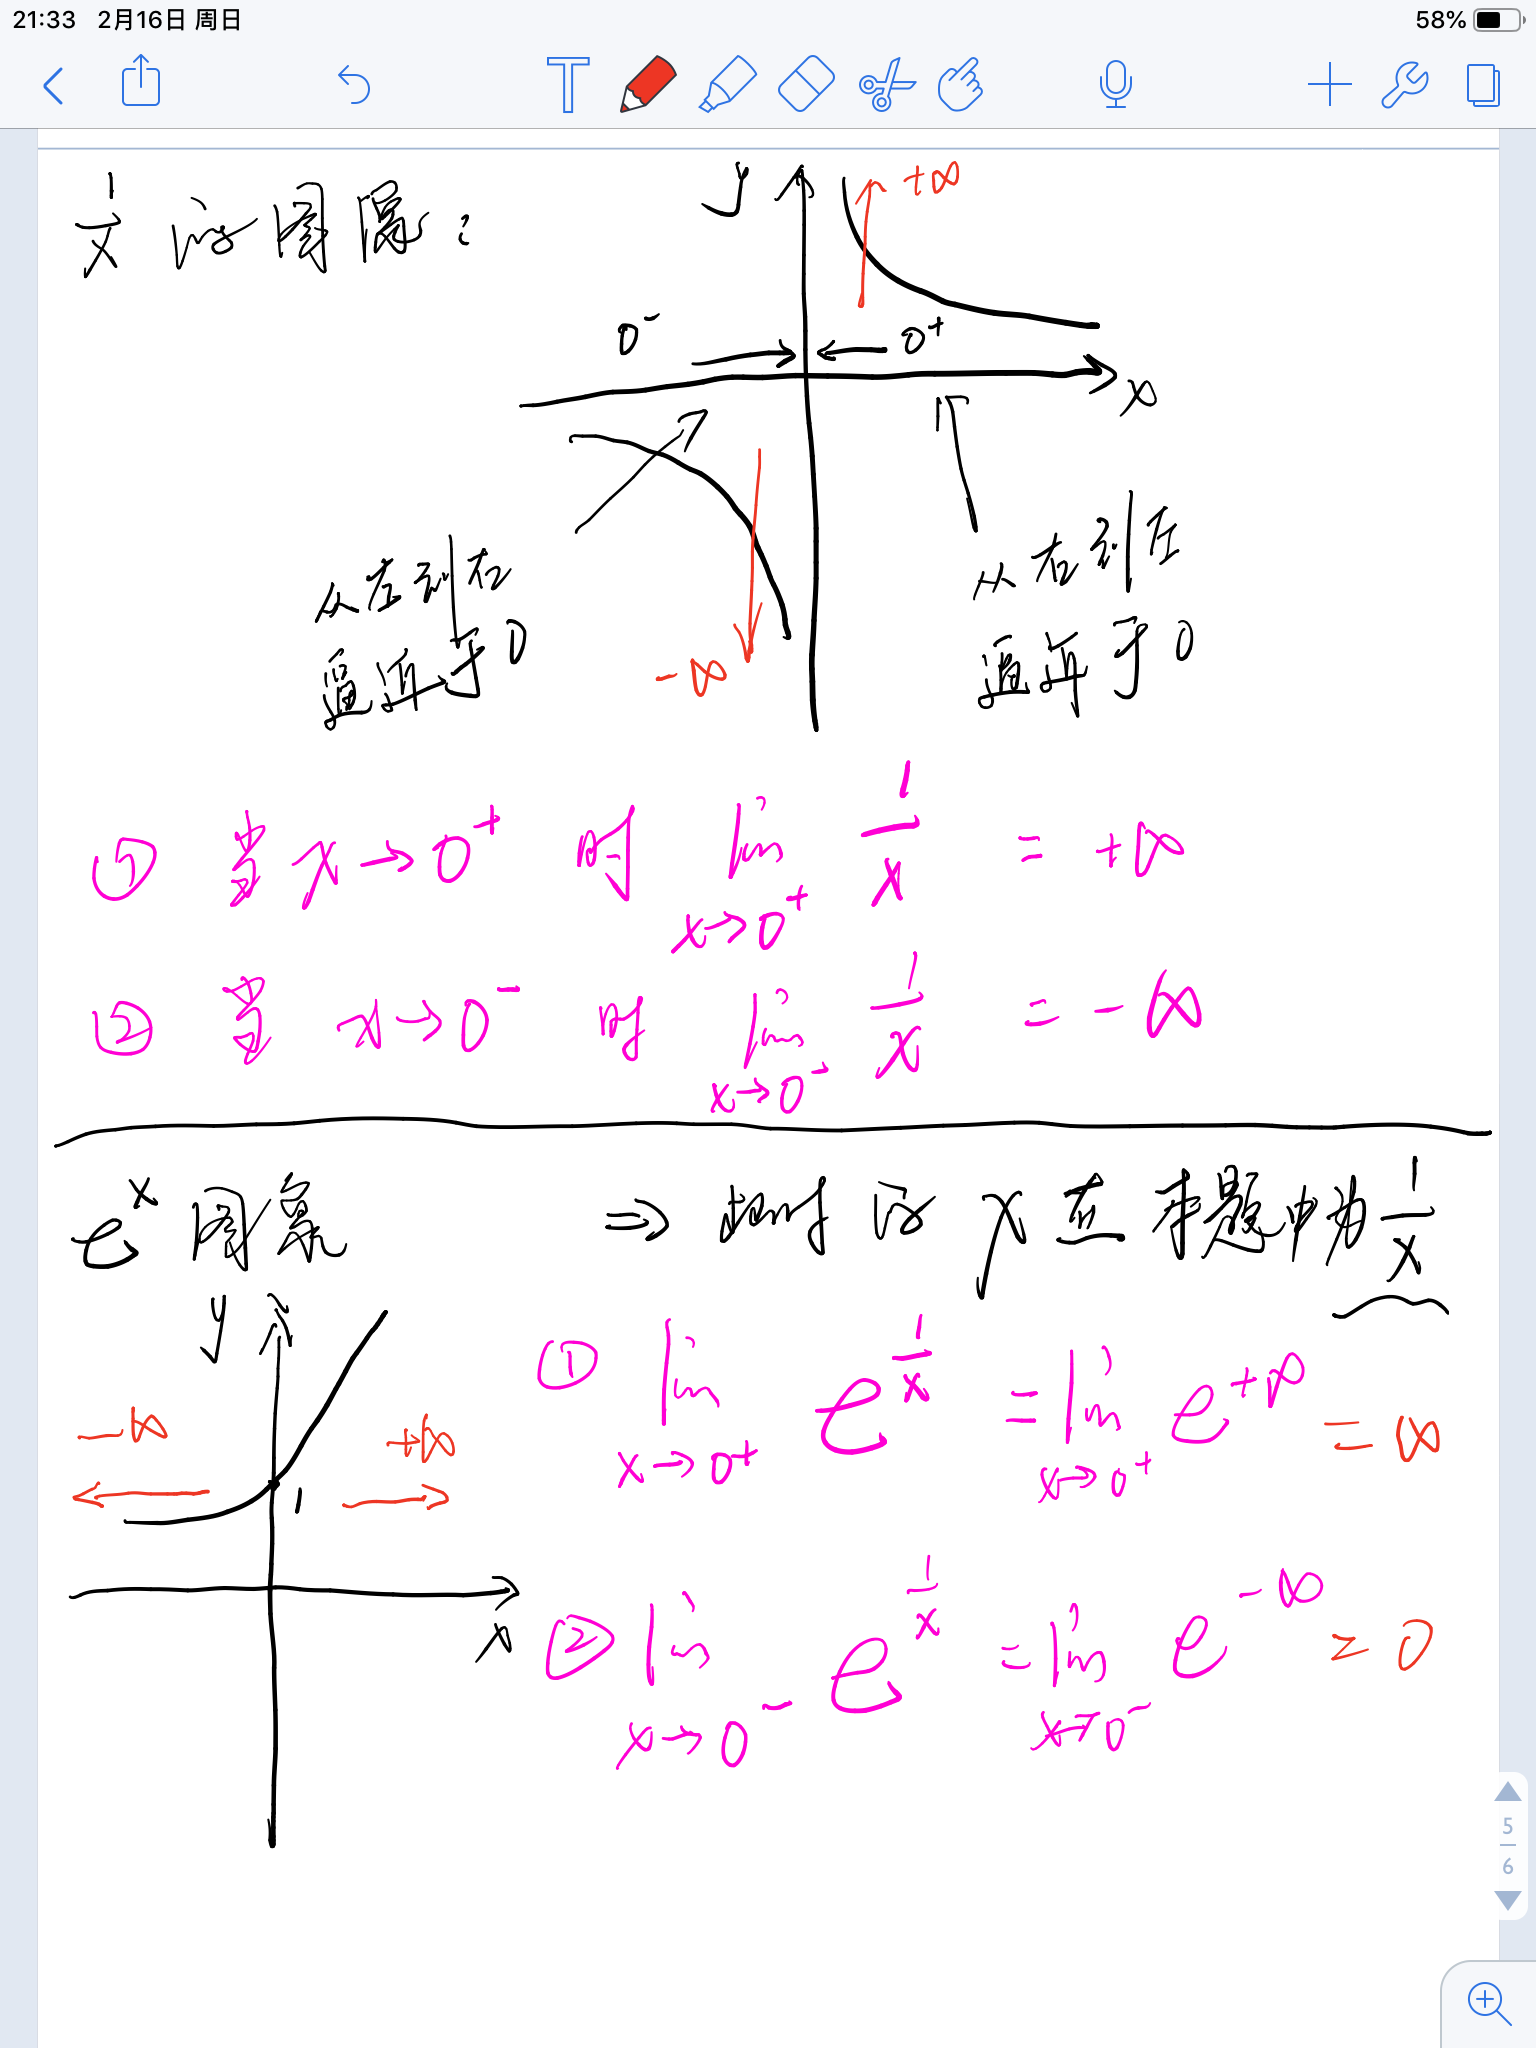 21:33 2月16日 周日 58%
1/x 的图像:
y +∞
0⁻ 0⁺
x
从左到右 从右到左
逼近于0 逼近于0
-∞
① 当 x→0⁺ 时 lim x→0⁺ 1/x = +∞
② 当 x→0⁻ 时 lim x→0⁻ 1/x = -∞
eˣ 图象 ⇒ 相对的 x 在本题中为 1/x
y
-∞ +∞
1
x
① lim x→0⁺ e^(1/x) = lim x→0⁺ e^(+∞) = ∞
② lim x→0⁻ e^(1/x) = lim x→0⁻ e^(-∞) = 0
5
6